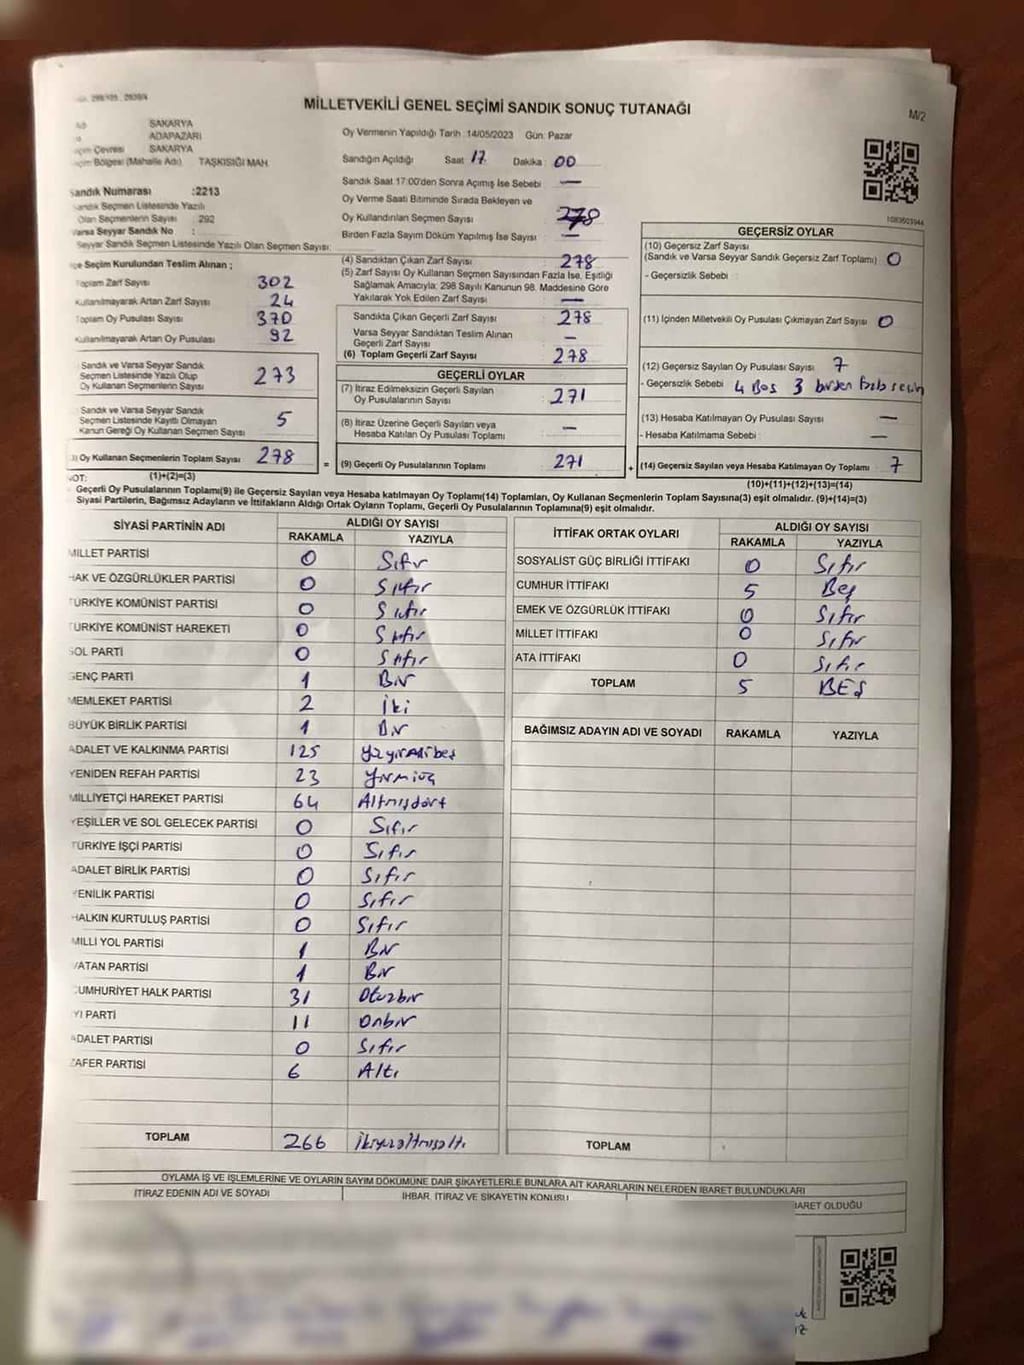 MİLLETVEKİLİ GENEL SEÇİMİ SANDIK SONUÇ TUTANAĞI
M/2
SAKARYA
ADAPAZARI
Çevresi SAKARYA
Bölgesi (Mahalle Adı) TAŞKISIĞI MAH.
Sandık Numarası :2213
Sandık Seçmen Listesinde Yazılı
Olan Seçmenlerin Sayısı : 292
Varsa Seyyar Sandık No :
Seyyar Sandık Seçmen Listesinde Yazılı Olan Seçmen Sayısı:
Oy Vermenin Yapıldığı Tarih :14/05/2023 Gün: Pazar
Sandığın Açıldığı Saat 17 Dakika 00
Sandık Saat 17:00'den Sonra Açılmış İse Sebebi —
Oy Verme Saati Bitiminde Sırada Bekleyen ve
Oy Kullandırılan Seçmen Sayısı 278
Birden Fazla Sayım Döküm Yapılmış İse Sayısı —
İlçe Seçim Kurulundan Teslim Alınan ;
Toplam Zarf Sayısı 302
Kullanılmayarak Artan Zarf Sayısı 24
Toplam Oy Pusulası Sayısı 370
Kullanılmayarak Artan Oy Pusulası 92
Sandık ve Varsa Seyyar Sandık
Seçmen Listesinde Yazılı Olup
Oy Kullanan Seçmenlerin Sayısı 273
Sandık ve Varsa Seyyar Sandık
Seçmen Listesinde Kayıtlı Olmayan
Kanun Gereği Oy Kullanan Seçmen Sayısı 5
Oy Kullanan Seçmenlerin Toplam Sayısı 278
(1)+(2)=(3)
(4) Sandıktan Çıkan Zarf Sayısı 278
(5) Zarf Sayısı Oy Kullanan Seçmen Sayısından Fazla İse, Eşitliği
Sağlamak Amacıyla; 298 Sayılı Kanunun 98. Maddesine Göre
Yakılarak Yok Edilen Zarf Sayısı —
Sandıkta Çıkan Geçerli Zarf Sayısı 278
Varsa Seyyar Sandıktan Teslim Alınan
Geçerli Zarf Sayısı —
(6) Toplam Geçerli Zarf Sayısı 278
GEÇERLİ OYLAR
(7) İtiraz Edilmeksizin Geçerli Sayılan
Oy Pusulalarının Sayısı 271
(8) İtiraz Üzerine Geçerli Sayılan veya
Hesaba Katılan Oy Pusulası Toplamı —
= (9) Geçerli Oy Pusulalarının Toplamı 271
GEÇERSİZ OYLAR
(10) Geçersiz Zarf Sayısı
(Sandık ve Varsa Seyyar Sandık Geçersiz Zarf Toplamı) 0
- Geçersizlik Sebebi :
(11) İçinden Milletvekili Oy Pusulası Çıkmayan Zarf Sayısı 0
(12) Geçersiz Sayılan Oy Pusulası Sayısı 7
- Geçersizlik Sebebi : 4 Boş 3 birden fazla seçim
(13) Hesaba Katılmayan Oy Pusulası Sayısı —
- Hesaba Katılmama Sebebi : —
+ (14) Geçersiz Sayılan veya Hesaba Katılmayan Oy Toplamı 7
(10)+(11)+(12)+(13)=(14)
NOT:
Geçerli Oy Pusulalarının Toplamı(9) ile Geçersiz Sayılan veya Hesaba katılmayan Oy Toplamı(14) Toplamları, Oy Kullanan Seçmenlerin Toplam Sayısına(3) eşit olmalıdır. (9)+(14)=(3)
Siyasi Partilerin, Bağımsız Adayların ve İttifakların Aldığı Ortak Oyların Toplamı, Geçerli Oy Pusulalarının Toplamına(9) eşit olmalıdır.
SİYASİ PARTİNİN ADI ALDIĞI OY SAYISI
RAKAMLA YAZIYLA
MİLLET PARTİSİ 0 Sıfır
HAK VE ÖZGÜRLÜKLER PARTİSİ 0 Sıfır
TÜRKİYE KOMÜNİST PARTİSİ 0 Sıfır
TÜRKİYE KOMÜNİST HAREKETİ 0 Sıfır
SOL PARTİ 0 Sıfır
GENÇ PARTİ 1 Bir
MEMLEKET PARTİSİ 2 İki
BÜYÜK BİRLİK PARTİSİ 1 Bir
ADALET VE KALKINMA PARTİSİ 125 Yüzyirmibeş
YENİDEN REFAH PARTİSİ 23 Yirmiüç
MİLLİYETÇİ HAREKET PARTİSİ 64 Altmışdört
YEŞİLLER VE SOL GELECEK PARTİSİ 0 Sıfır
TÜRKİYE İŞÇİ PARTİSİ 0 Sıfır
ADALET BİRLİK PARTİSİ 0 Sıfır
YENİLİK PARTİSİ 0 Sıfır
HALKIN KURTULUŞ PARTİSİ 0 Sıfır
MİLLİ YOL PARTİSİ 1 Bir
VATAN PARTİSİ 1 Bir
CUMHURİYET HALK PARTİSİ 31 Otuzbir
İYİ PARTİ 11 Onbir
ADALET PARTİSİ 0 Sıfır
ZAFER PARTİSİ 6 Altı
TOPLAM 266 İkiyüzaltmışaltı
İTTİFAK ORTAK OYLARI ALDIĞI OY SAYISI
RAKAMLA YAZIYLA
SOSYALİST GÜÇ BİRLİĞİ İTTİFAKI 0 Sıfır
CUMHUR İTTİFAKI 5 Beş
EMEK VE ÖZGÜRLÜK İTTİFAKI 0 Sıfır
MİLLET İTTİFAKI 0 Sıfır
ATA İTTİFAKI 0 Sıfır
TOPLAM 5 BEŞ
BAĞIMSIZ ADAYIN ADI VE SOYADI RAKAMLA YAZIYLA
TOPLAM
OYLAMA İŞ VE İŞLEMLERİNE VE OYLARIN SAYIM DÖKÜMÜNE DAİR ŞİKAYETLERLE BUNLARA AİT KARARLARIN NELERDEN İBARET BULUNDUKLARI
İTİRAZ EDENİN ADI VE SOYADI İHBAR, İTİRAZ VE ŞİKAYETİN KONUSU İBARET OLDUĞU